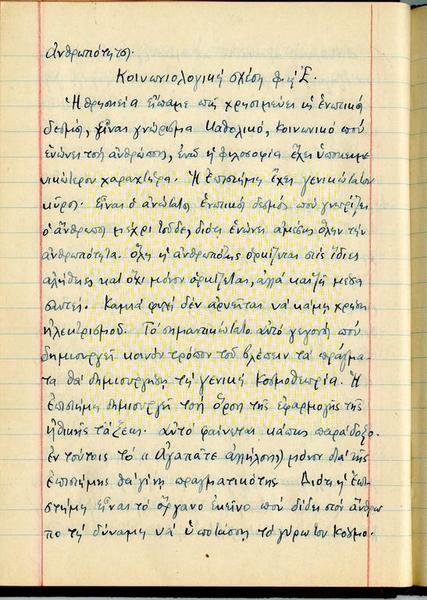 ἀνθρωπότητα.
Κοινωνιολογική σχέση Φ. ἡ Ε.
Ἡ θρησκεία εἴπαμε πώς χρησιμεύει ὡς ἑνωτικός
δεσμός, εἶναι γνώρισμα καθολικό, κοινωνικό πού
ἑνώνει τούς ἀνθρώπους, ἐνῶ ἡ φιλοσοφία ἔχει ὑποκειμε-
νικώτερον χαρακτῆρα. Ἡ ἐπιστήμη ἔχει γενικώτατον
κῦρος. Εἶναι ὁ ἀνώτατος ἑνωτικός δεσμός πού γνωρίζει
ὁ ἄνθρωπος μέχρι τοῦδε, διότι ἑνώνει ἀμέσως ὅλην τήν
ἀνθρωπότητα. Ὅλη ἡ ἀνθρωπότης ὁρκίζεται στίς ἴδιες
ἀλήθειες καί ὄχι μόνον ὁρκίζεται, ἀλλά καί ζῆ μέσα
σαυτές. Καμιά φυλή δέν ἀρνεῖται νά κάμη χρήση
ἠλεκτρισμοῦ. Τό σημαντικώτατο αὐτό γεγονός πού
δημιουργεῖ κοινόν τρόπον τοῦ βλέπειν τά πράγμα-
τα θά δημιουργήση τή γενική κοσμοθεωρία. Ἡ
ἐπιστήμη δημιουργεῖ τούς ὅρους τῆς ἐφαρμογῆς τῆς
ἠθικῆς τάξεως. αὐτό φαίνεται κάπως παράδοξο.
ἐν τούτοις τό «Ἀγαπᾶτε ἀλλήλους» μόνον διά τῆς
ἐπιστήμης θά γίνη πραγματικότης. Διότι ἡ ἐπι-
στήμη εἶναι τό ὄργανο ἐκεῖνο πού δίδει στόν ἄνθρω
πο τή δύναμη νά ὑποτάσση τό γύρω του κόσμο.